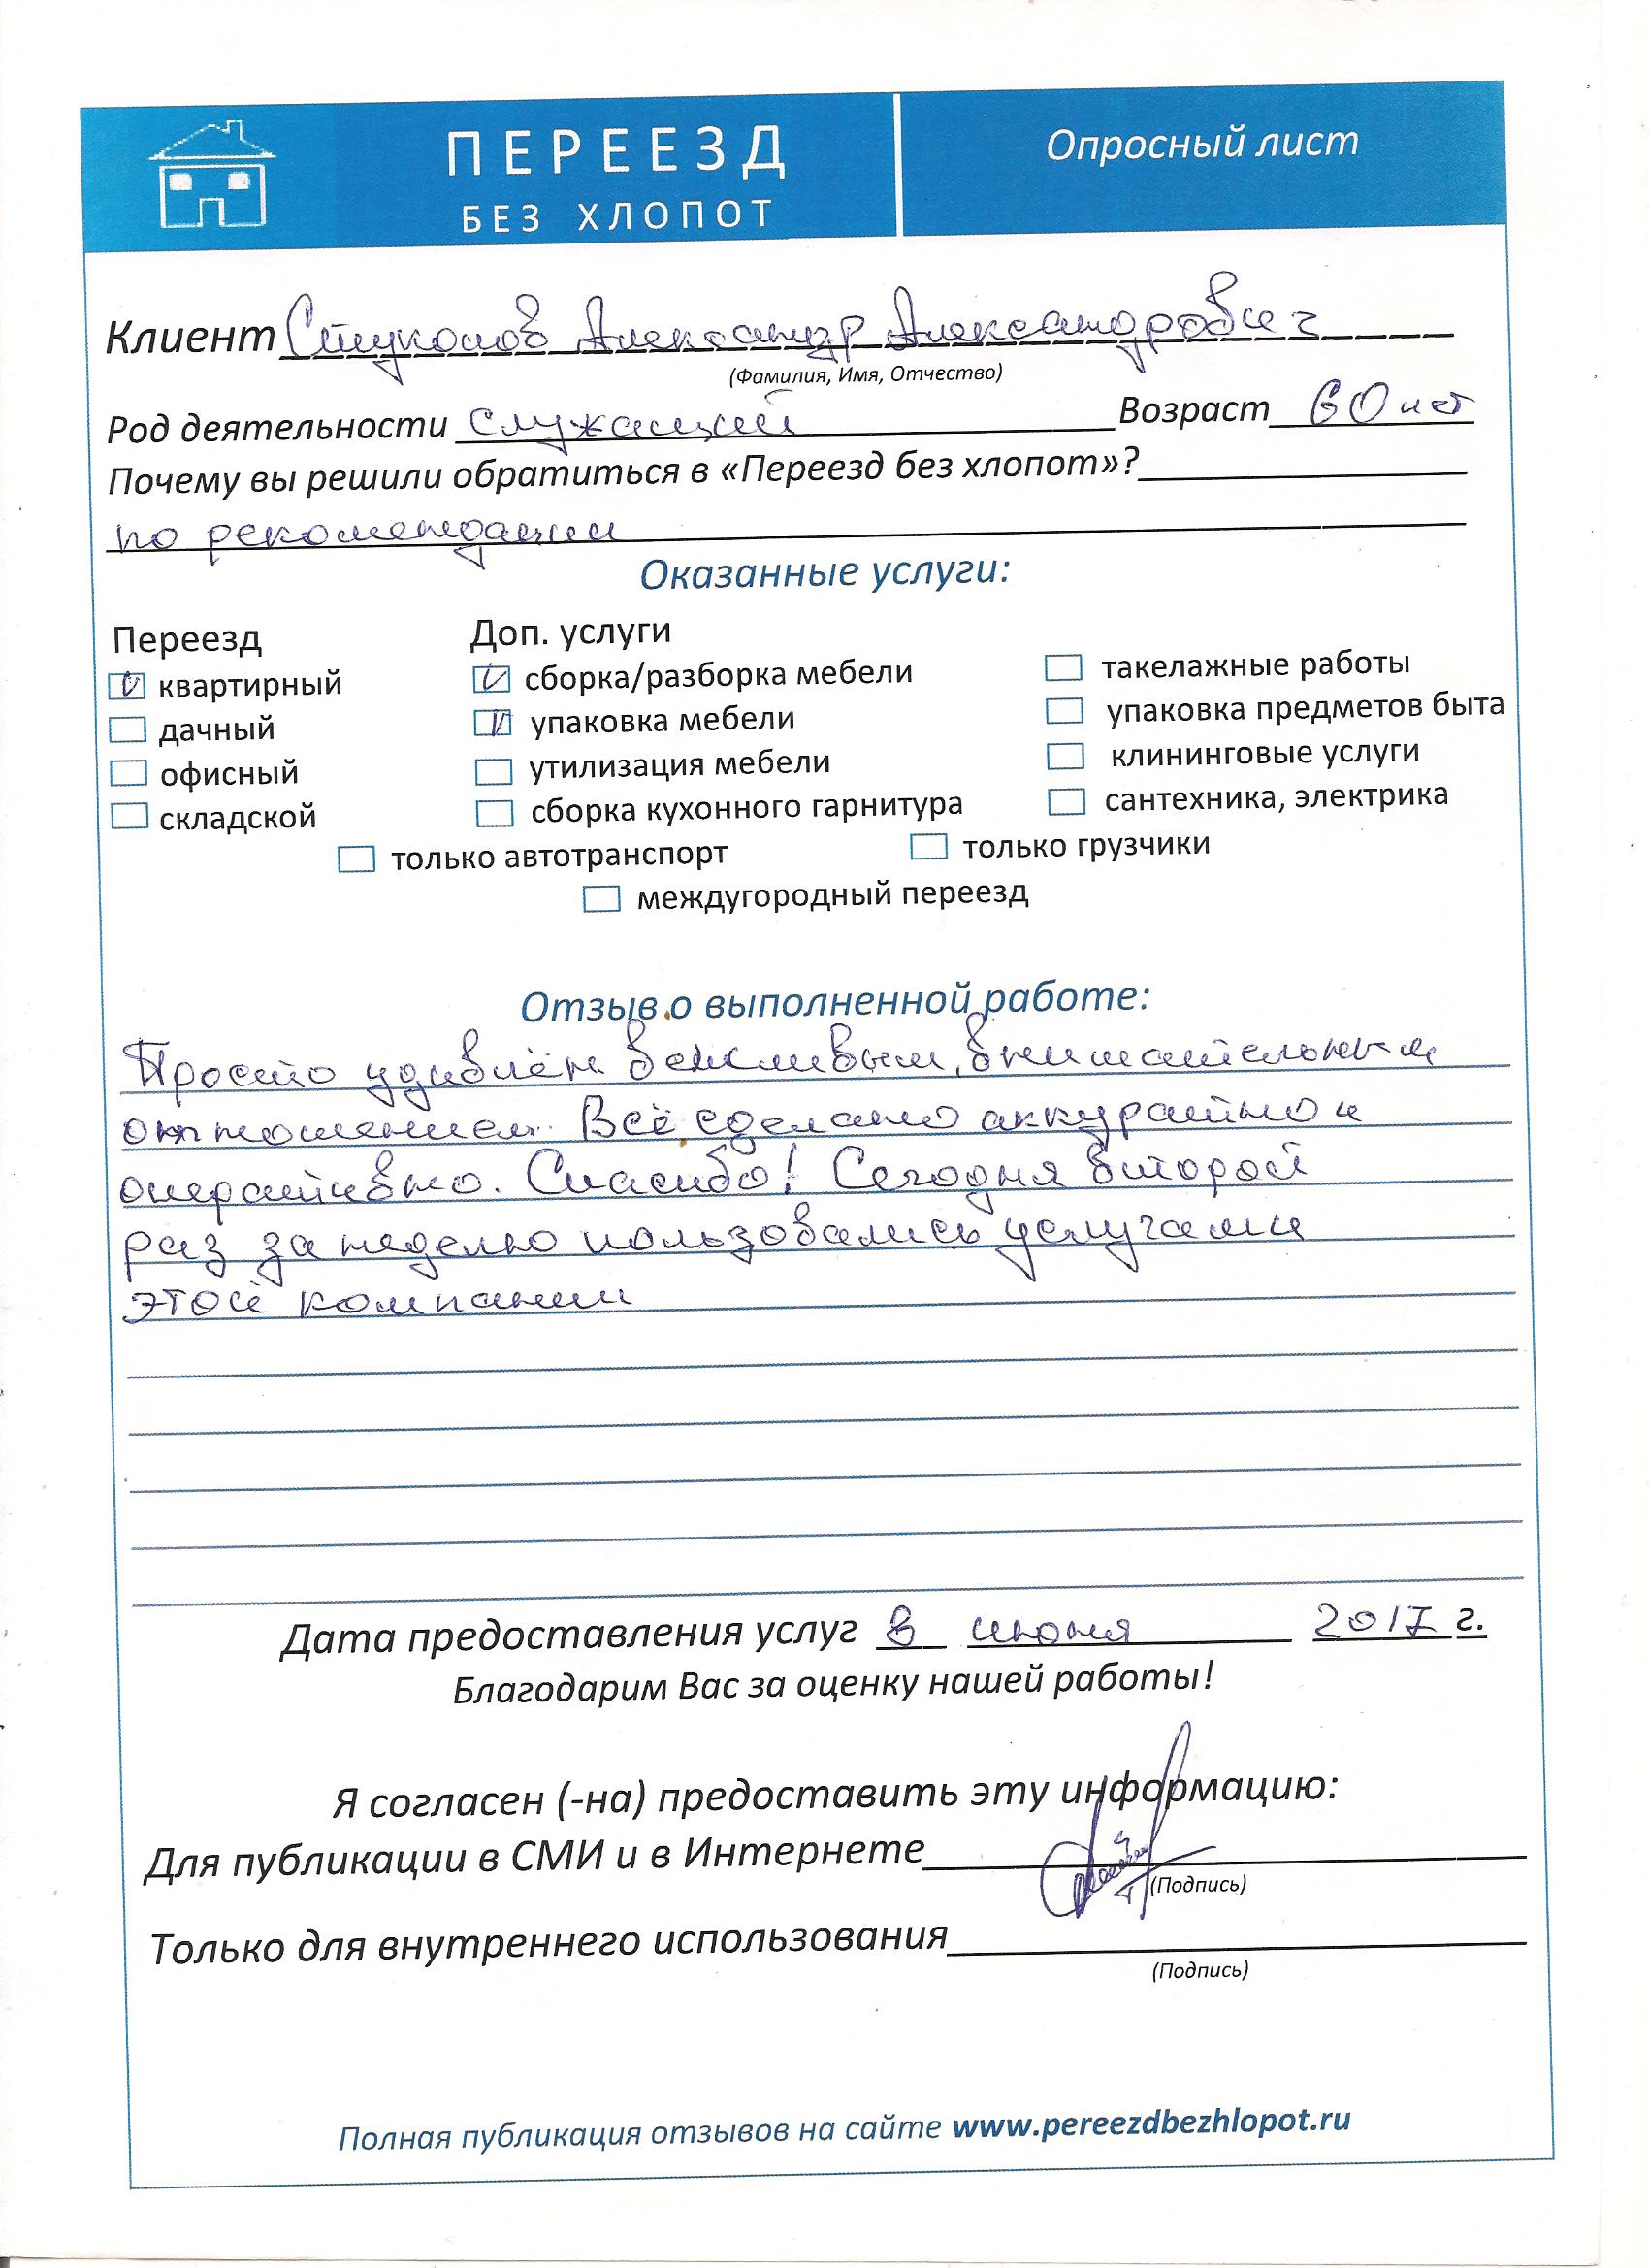 ПЕРЕЕЗД
БЕЗ ХЛОПОТ
Опросный лист
Клиент Стуколов Александр Александрович
(Фамилия, Имя, Отчество)
Род деятельности служащий Возраст 60 лет
Почему вы решили обратиться в «Переезд без хлопот»?
по рекомендации
Оказанные услуги:
Переезд Доп. услуги
квартирный сборка/разборка мебели такелажные работы
дачный упаковка мебели упаковка предметов быта
офисный утилизация мебели клининговые услуги
складской сборка кухонного гарнитура сантехника, электрика
только автотранспорт только грузчики
междугородный переезд
Отзыв о выполненной работе:
Просто удивлён вежливым, внимательным
отношением. Всё сделано аккуратно и
оперативно. Спасибо! Сегодня второй
раз за неделю пользовались услугами
этой компании
Дата предоставления услуг 8 июня 2017 г.
Благодарим Вас за оценку нашей работы!
Я согласен (-на) предоставить эту информацию:
Для публикации в СМИ и в Интернете
(Подпись)
Только для внутреннего использования
(Подпись)
Полная публикация отзывов на сайте www.pereezdbezhlopot.ru